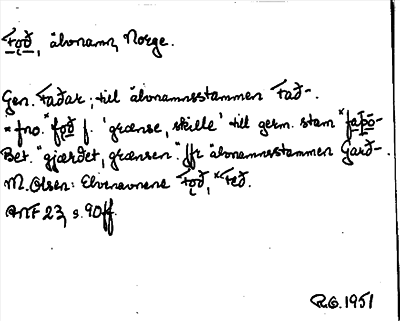 Fǫð, älvnamn, Norge.
Gen. Faðar; till älvnamnsstammen Fað-.
*fno. *fǫð f. 'grænse, skille' till germ. stam *faþō-
Bet. "gjærdet, grænsen". Jfr älvnamnsstammen Garð-.
M. Olsen: Elvenavnene Fǫð, *Feð.
ANF 23, s. 90ff.
R.O. 1951